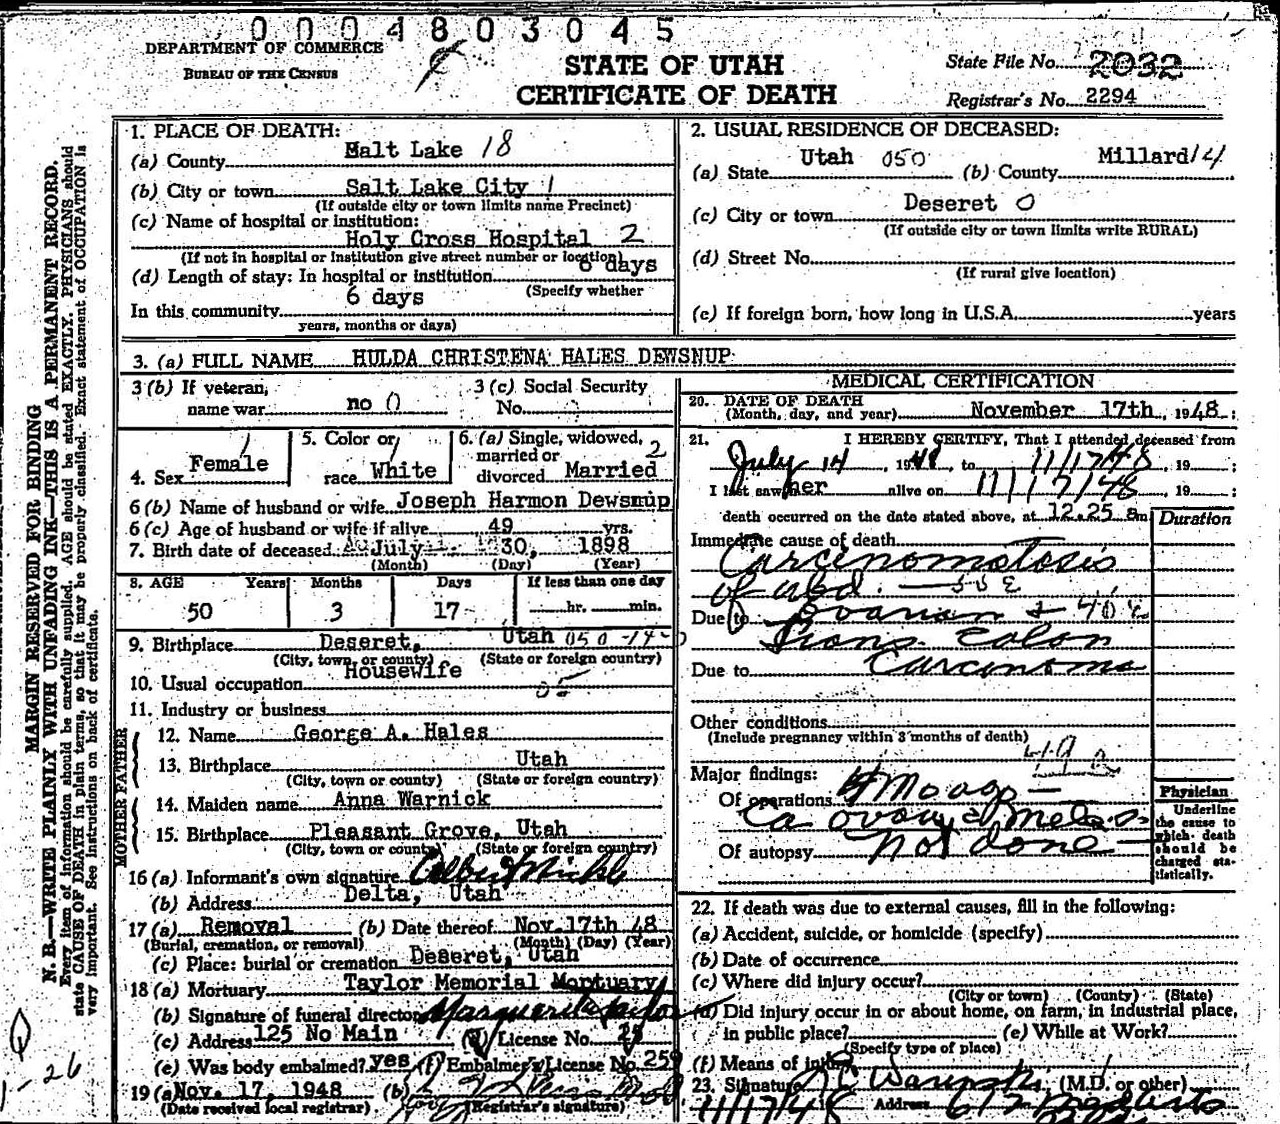 0 0 0 4 8 0 3 0 4 5
DEPARTMENT OF COMMERCE
BUREAU OF THE CENSUS
STATE OF UTAH
CERTIFICATE OF DEATH
State File No. 2032
Registrar's No. 2294
MARGIN RESERVED FOR BINDING
N. B.—WRITE PLAINLY WITH UNFADING INK—THIS IS A PERMANENT RECORD.
Every item of information should be carefully supplied. AGE should be stated EXACTLY. PHYSICIANS should
state CAUSE OF DEATH in plain terms, so that it may be properly classified. Exact statement of OCCUPATION is
very important. See instructions on back of certificate.
1. PLACE OF DEATH:
(a) County Salt Lake 18
(b) City or town Salt Lake City 1
(If outside city or town limits name Precinct)
(c) Name of hospital or institution:
Holy Cross Hospital 2
(If not in hospital or institution give street number or location)
(d) Length of stay: In hospital or institution 6 days
(Specify whether
In this community 6 days
years, months or days)
2. USUAL RESIDENCE OF DECEASED:
(a) State Utah 050 (b) County Millard 14
(c) City or town Deseret 0
(If outside city or town limits write RURAL)
(d) Street No.
(If rural give location)
(e) If foreign born, how long in U.S.A. years
3. (a) FULL NAME HULDA CHRISTENA HALES DEWSNUP
3 (b) If veteran, name war no 0
3 (c) Social Security No.
4. Sex Female
5. Color or race White
6. (a) Single, widowed, married or divorced Married 2
6 (b) Name of husband or wife Joseph Harmon Dewsnup
6 (c) Age of husband or wife if alive 49 yrs.
7. Birth date of deceased July 30, 1898
(Month) (Day) (Year)
8. AGE Years Months Days If less than one day
50 3 17 hr. min.
9. Birthplace Deseret, Utah 050-14-0
(City, town, or county) (State or foreign country)
10. Usual occupation Housewife
11. Industry or business
FATHER
12. Name George A. Hales
13. Birthplace Utah
(City, town or county) (State or foreign country)
MOTHER
14. Maiden name Anna Warnick
15. Birthplace Pleasant Grove, Utah
(City, town or county) (State or foreign country)
16 (a) Informant's own signature
(b) Address Delta, Utah
17 (a) Removal (b) Date thereof Nov. 17th 48
(Burial, cremation, or removal) (Month) (Day) (Year)
(c) Place: burial or cremation Deseret, Utah
18 (a) Mortuary Taylor Memorial Mortuary
(b) Signature of funeral director Marguerite Taylor
(c) Address 125 No Main (d) License No.
(e) Was body embalmed? yes (f) Embalmer's License No. 259
19 (a) Nov. 17, 1948 (b)
(Date received local registrar) (Registrar's signature)
MEDICAL CERTIFICATION
20. DATE OF DEATH
(Month, day, and year) November 17th, 1948;
21. I HEREBY CERTIFY, That I attended deceased from
July 14, 1948, to 11/17/48, 19 ;
I last saw her alive on 11/17/48, 19 ;
death occurred on the date stated above, at 12.25 am
Duration
Immediate cause of death
Carcinomatosis
of abd.
Due to Ovarian
Trans. Colon
Due to Carcinoma
Other conditions
(Include pregnancy within 3 months of death)
Major findings:
Of operations
Ca ovary
Of autopsy not done
Physician
Underline
the cause to
which death
should be
charged sta-
tistically.
22. If death was due to external causes, fill in the following:
(a) Accident, suicide, or homicide (specify)
(b) Date of occurrence
(c) Where did injury occur?
(City or town) (County) (State)
(d) Did injury occur in or about home, on farm, in industrial place,
in public place? (e) While at Work?
(Specify type of place)
(f) Means of injury
23. Signature (M.D. or other)
11/17/48 Address